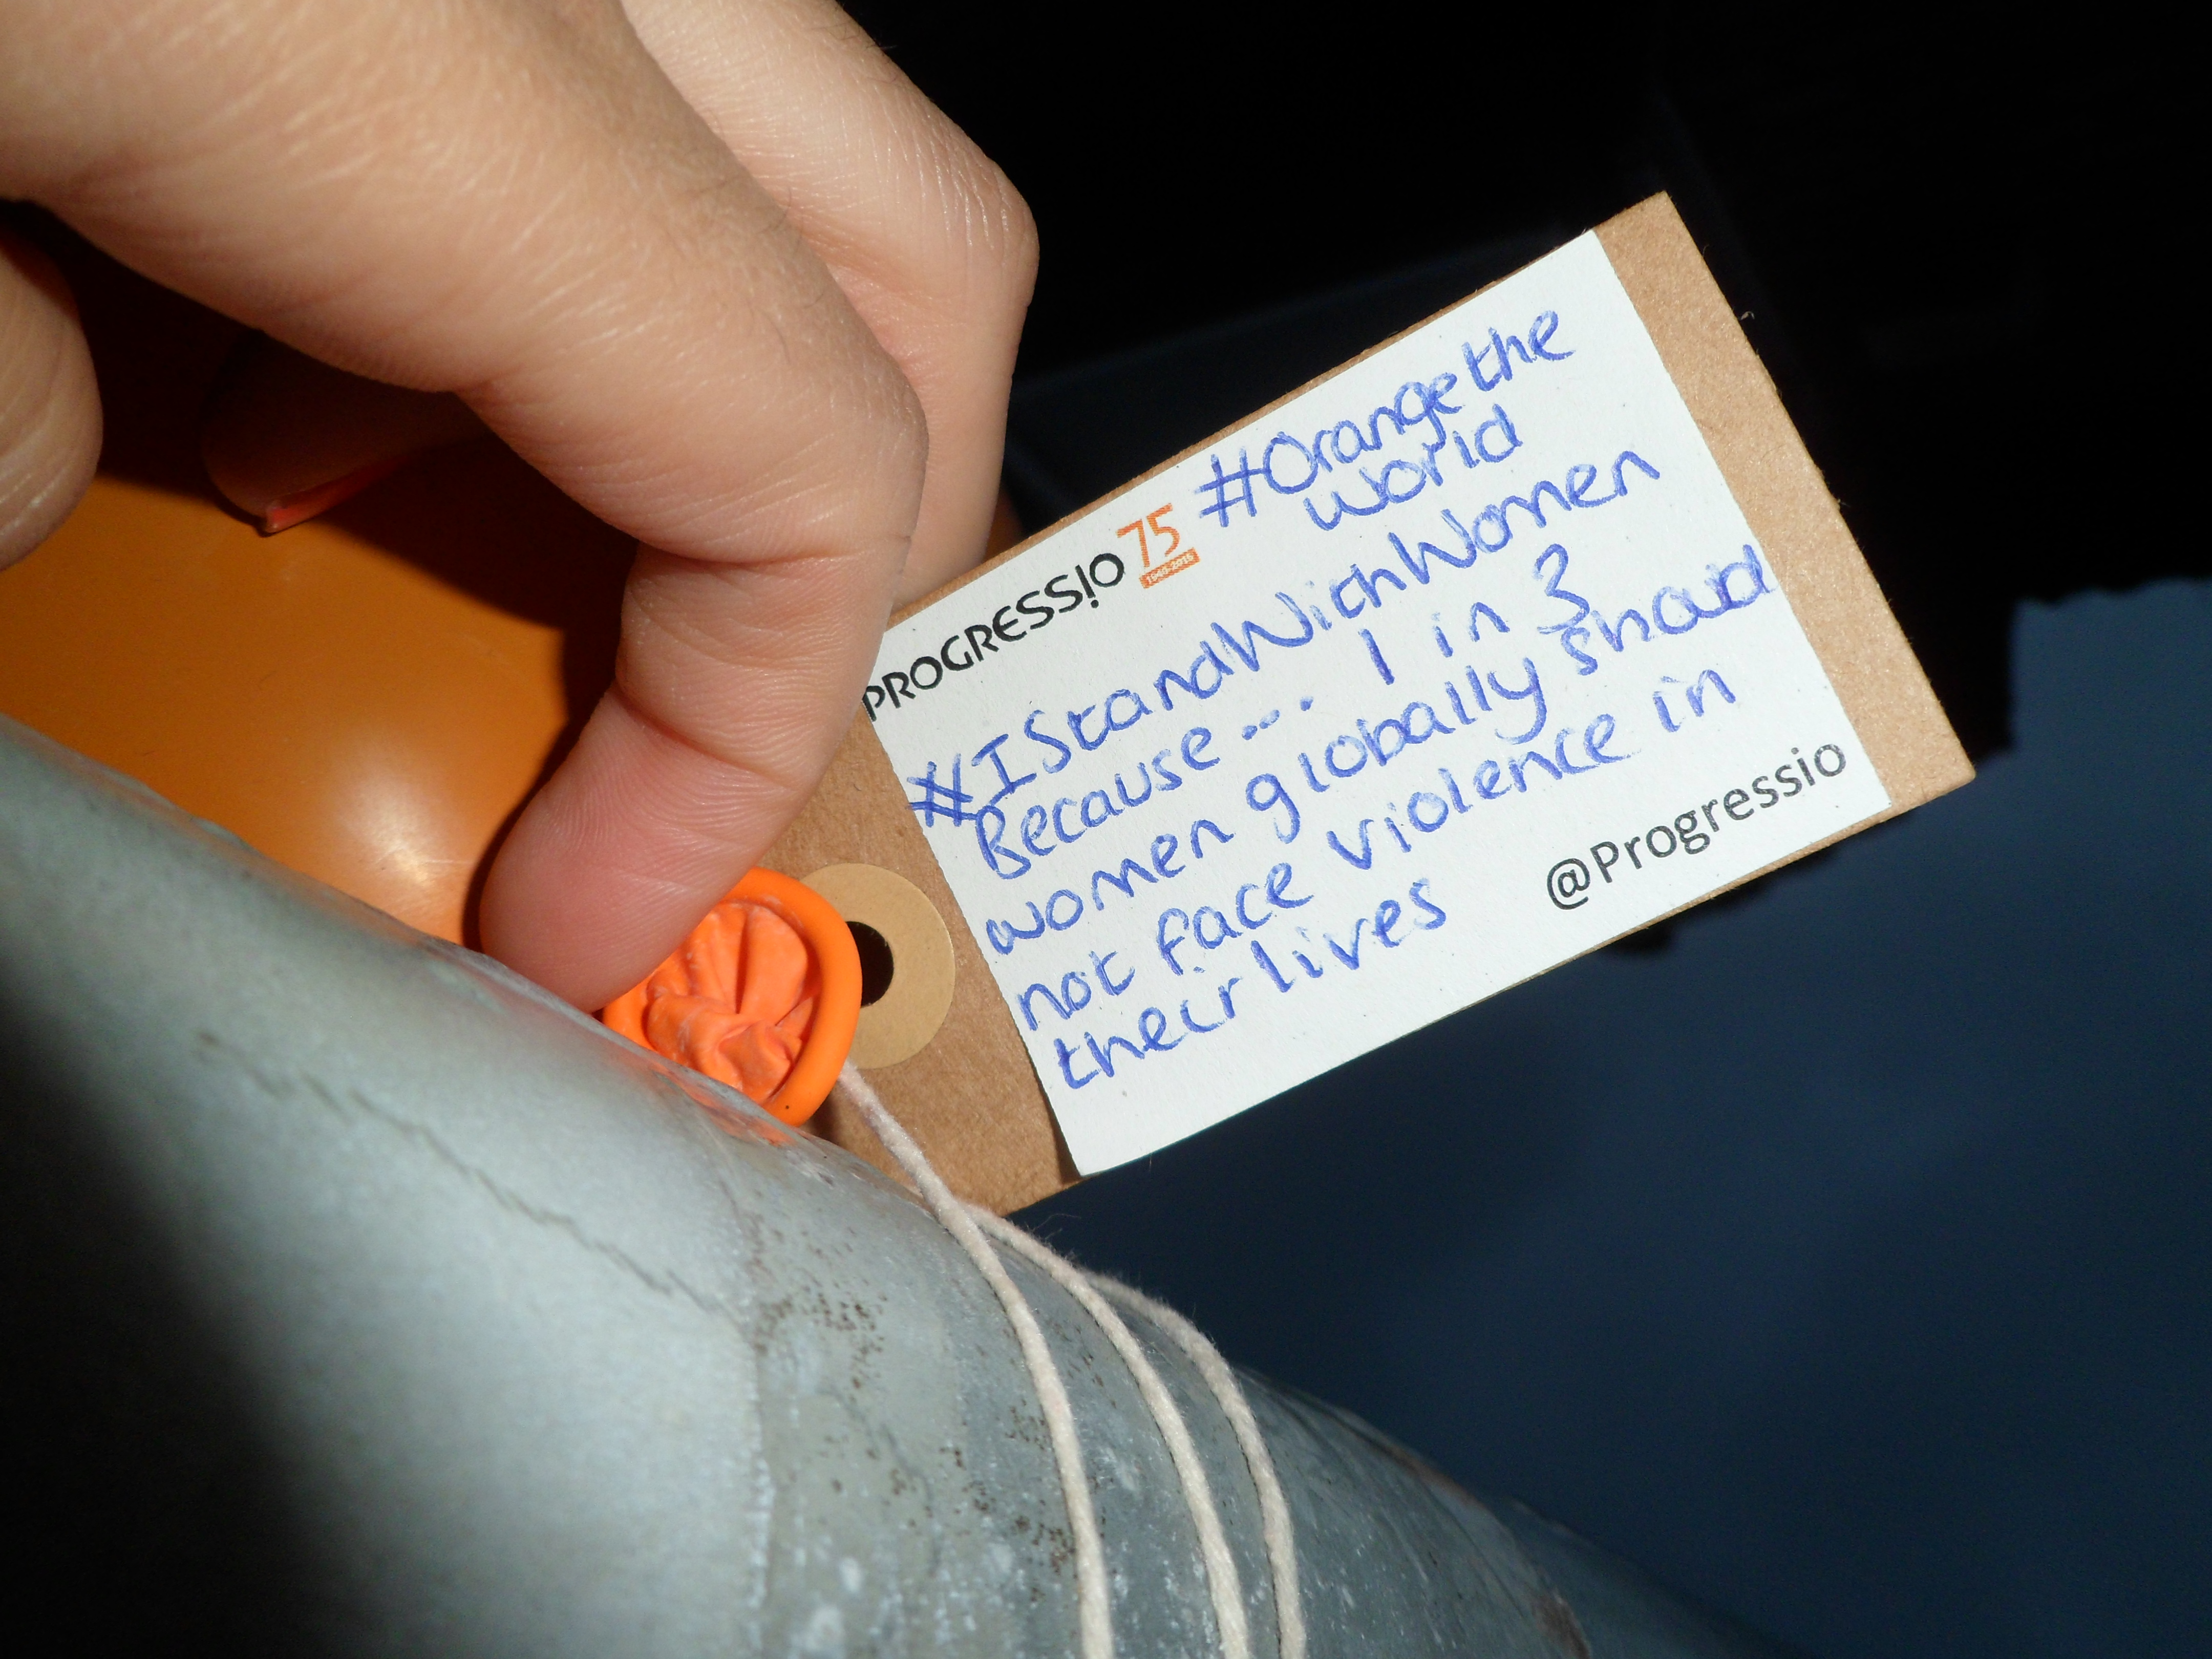 PROGRESSIO 75 #Orangethe
1940-2015 World
#IStandWithWomen
Because... 1 in 3
women globally should
not face violence in
their lives
@Progressio